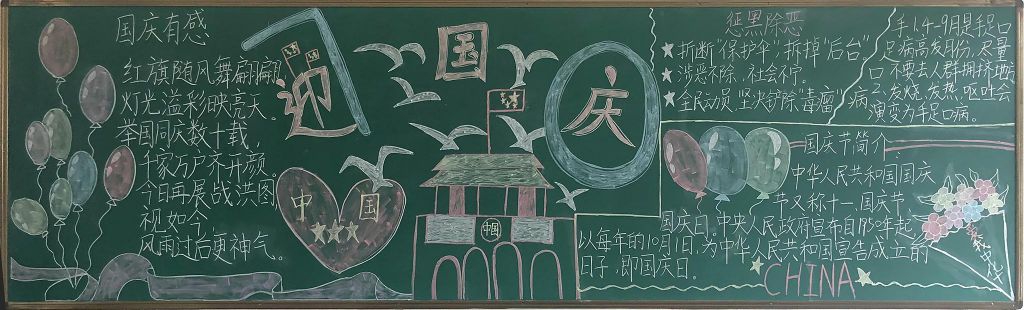 国庆有感
红旗随风舞翩翩
灯光溢彩映亮天。
举国同庆数十载，
千家万户齐开颜。
今日再展战洪图
视如今，
风雨过后更神气。
迎
国
庆
中国
中国
惩黑除恶
折断“保护伞”拆掉“后台”。
涉恶不除，社会不宁。
全民动员，坚决铲除“毒瘤”
手1、4-9月是手足口
足病高发月份，尽量
口不要去人群拥挤地
病2、发烧、发热，呕吐会
演变为手足口病。
国庆节简介
中华人民共和国国庆
节又称十一、国庆节、
国庆日。中央人民政府宣布自1950年起，
以每年的10月1日，为中华人民共和国宣告成立的
日子，即国庆日。
CHINA